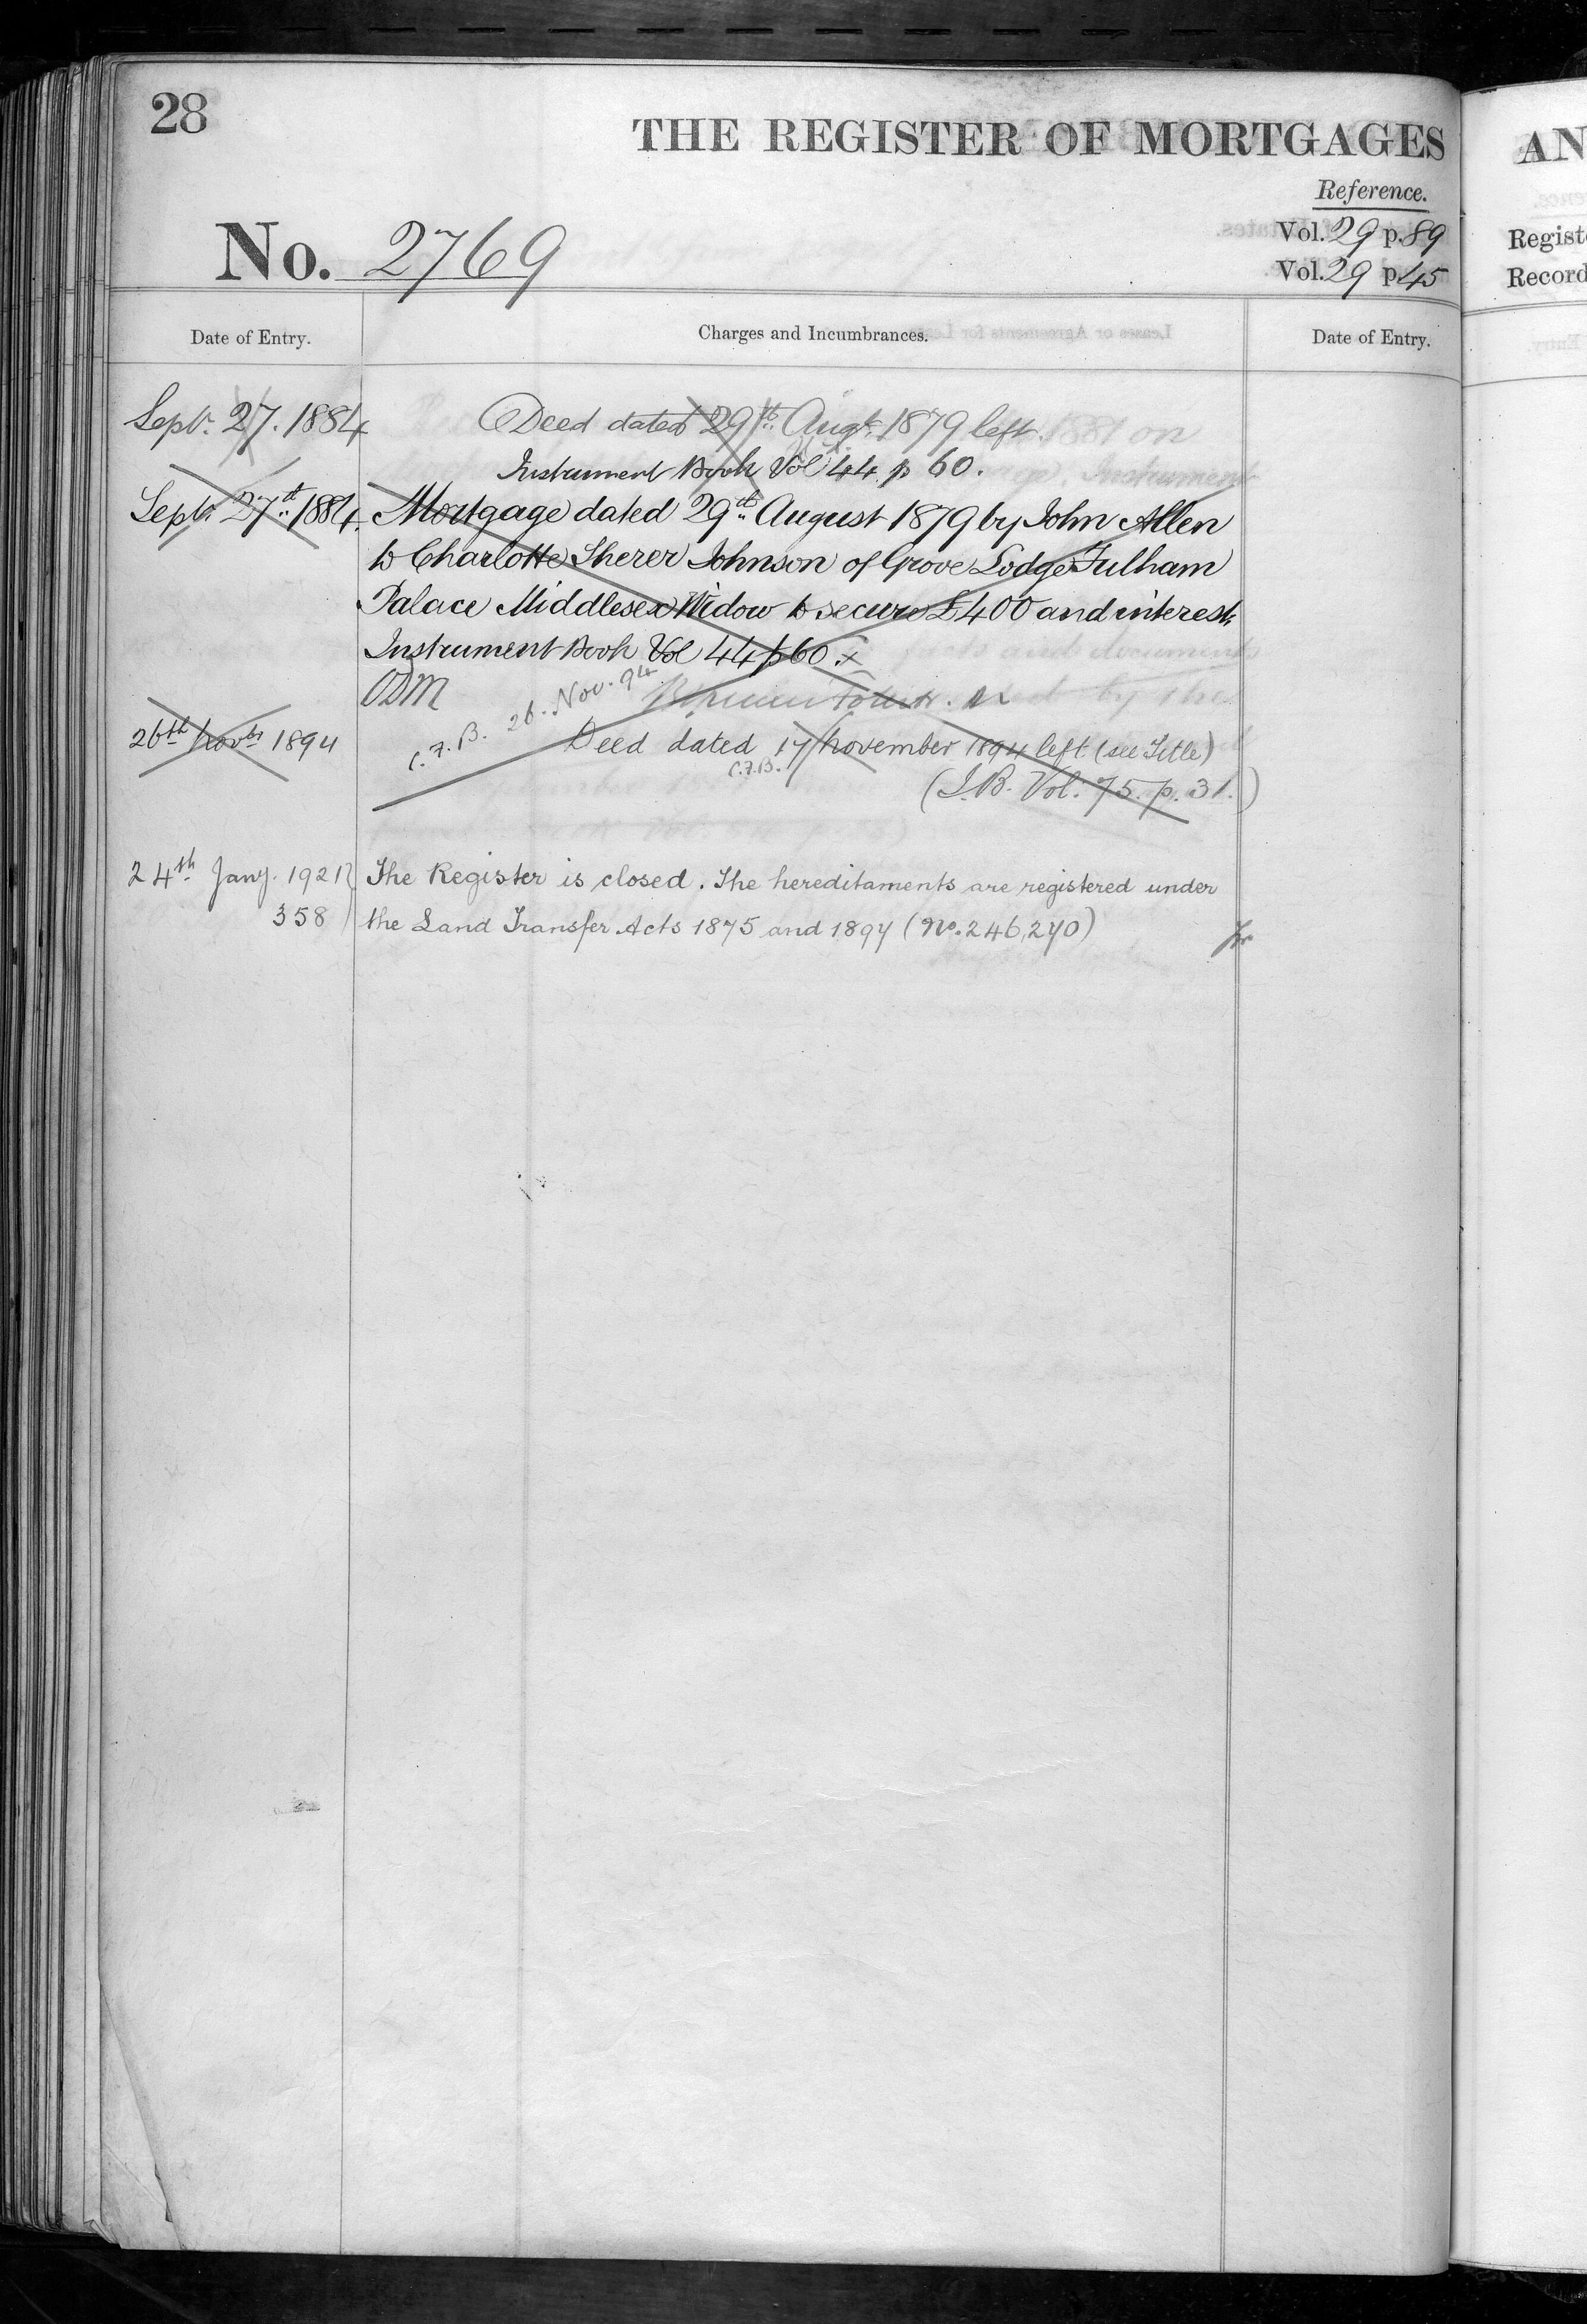 28
THE REGISTER OF MORTGAGES
Reference.
No. 2769
Vol. 29 p. 89
Vol. 29 p. 45
Date of Entry.
Charges and Incumbrances.
Date of Entry.
Septr. 27. 1884
Deed dated 29th Augt. 1879 left
Instrument Book Vol 44 p 60.
Septr. 27th 1884.
Mortgage dated 29th August 1879 by John Allen
to Charlotte Sherer Johnson of Grove Lodge Fulham
Palace Middlesex Widow to secure £400 and interest
Instrument Book Vol 44 p 60.
ODM
C.F.B. 26. Nov. 94
26th Novbr 1894
Deed dated 17 November 1894 left (see Title)
C.F.B.
(I.B. Vol. 75. p. 31.)
24th Jany. 1921
The Register is closed. The hereditaments are registered under
358
the Land Transfer Acts 1875 and 1897 (No. 246,270)
AN
Regist
Record